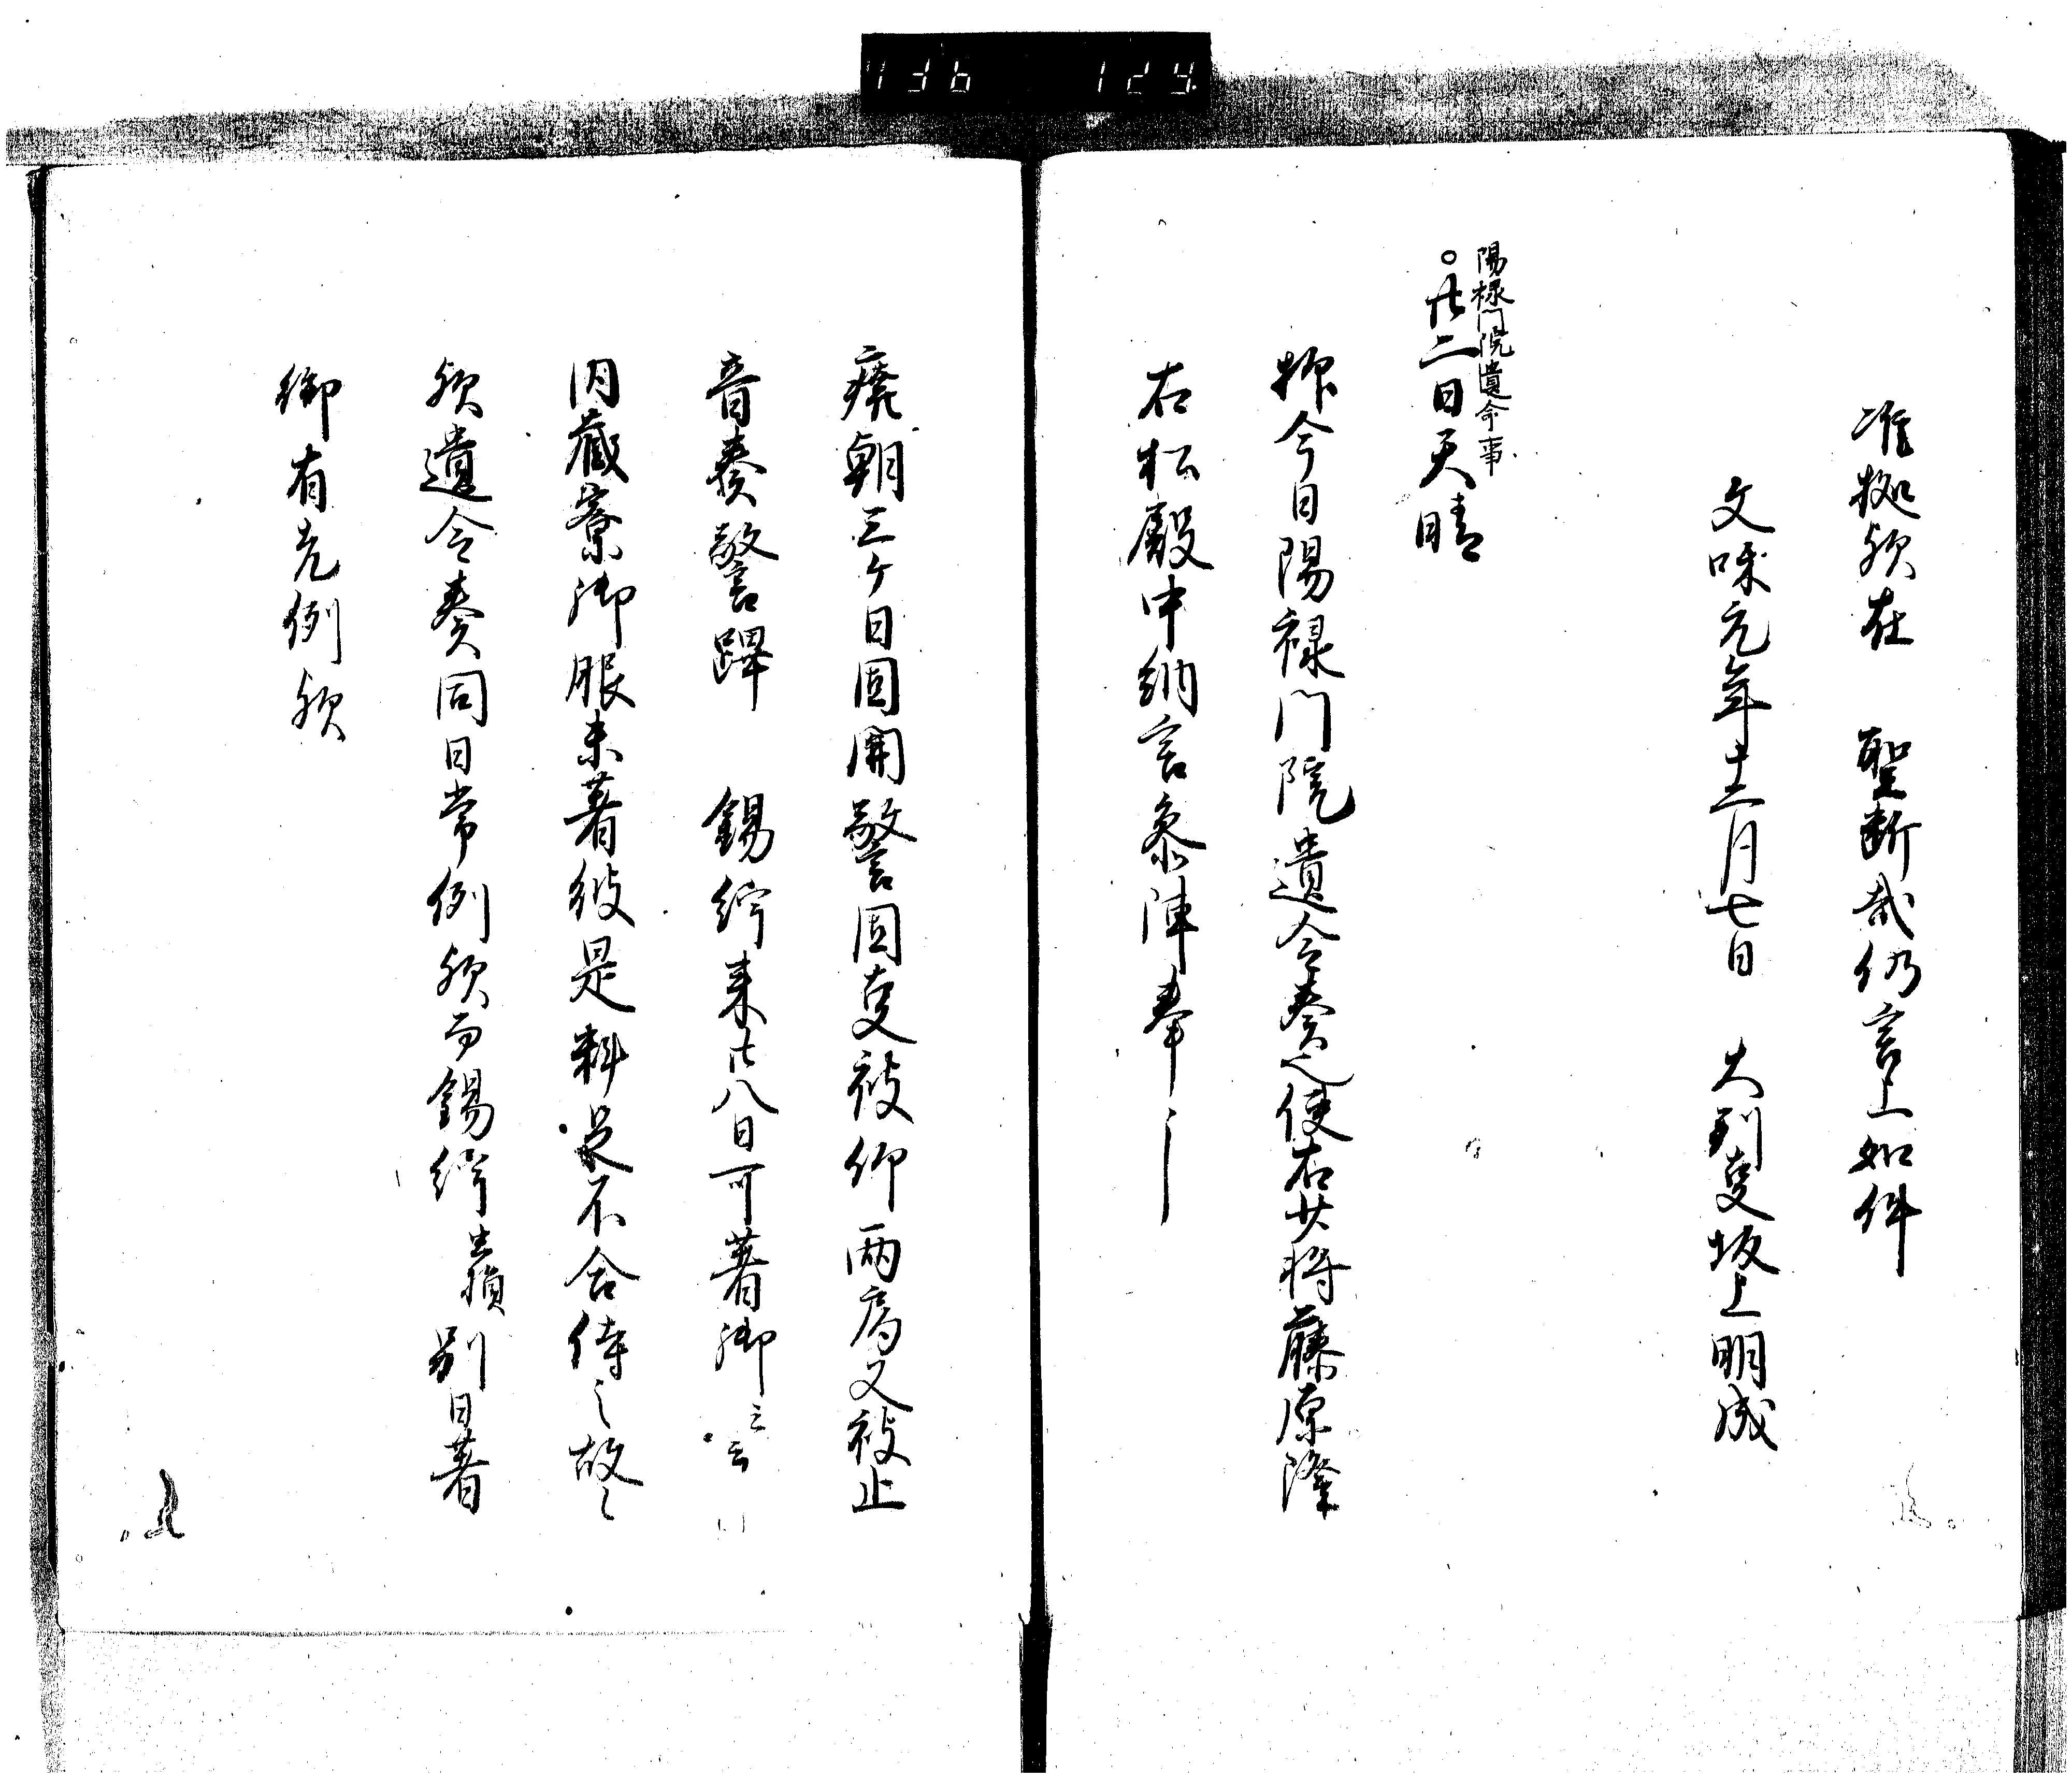 准拠欤在　聖断哉仍言上如件
文和元年十二月七日　大判事坂上明成
陽禄門院遺令事
○廿二日天晴
抑今日陽禄門院遺令奏也使右少将藤原隆
右松殿中納言参陣奉之
廃朝三ケ日固関警固事被仰両局又被止
音奏警蹕　錫紵来廿八日可著御云々
内蔵寮御服未著彼是料足不合侍之故云々
欤遺令奏同日常例欤而錫紵　別日著
御有先例欤
136 124